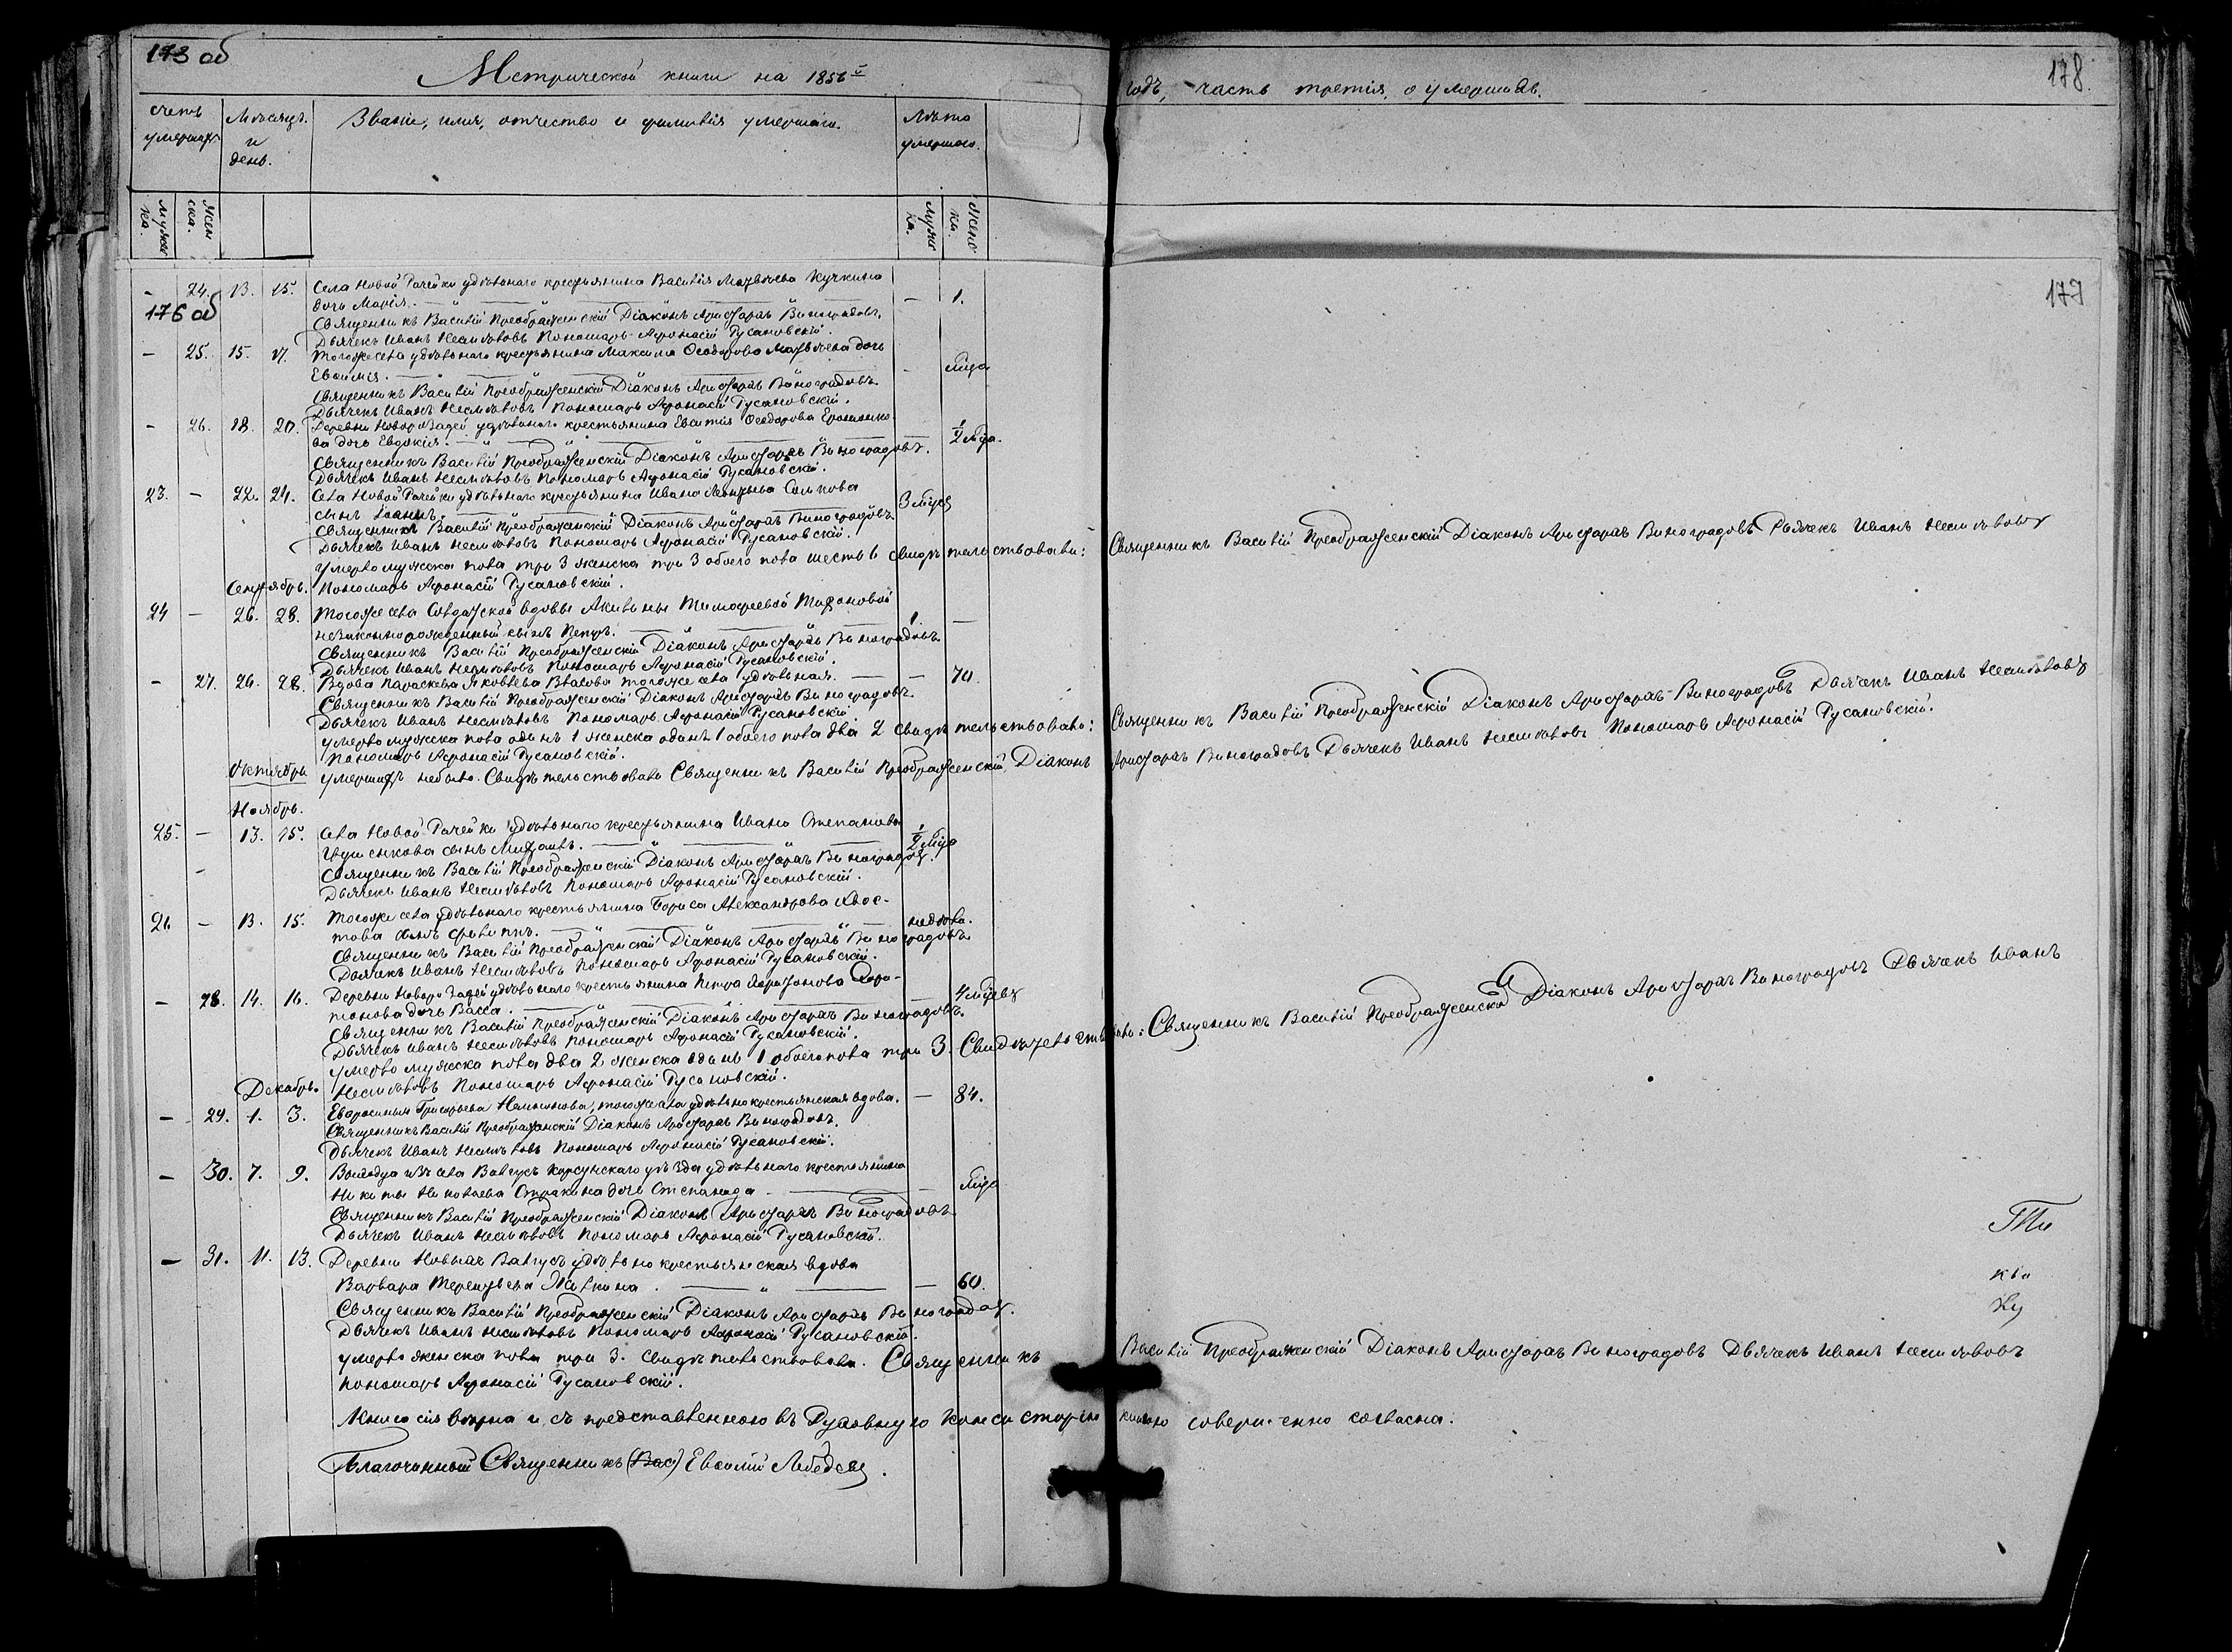 173 об
Метрической книги на 1856й годъ, часть третія, о умершихъ.
178.
счетъ умершихъ.
Мѣсяцъ. и день.
Званіе, имя, отчество и фамилія умершаго.
Лѣта умершаго.
Мужес ка.
Жен ска.
Мужес ка.
Женс ка.
177
176 об
— 24. 13. 15. Села Новой Рачейки удѣльнаго крестьянина Василія Матвѣева Кучкина
дочь Марія. — 1.
Священникъ Василій Преображенскій Діаконъ Аристархъ Виноградовъ.
Дьячекъ Иванъ Несмѣловъ Пономарь Афонасій Русановскій.
— 25. 15. 17. Тогоже села удѣльнаго крестьянина Максима Ѳеодорова Матвѣева дочь
Евѳимія. — года
Священникъ Василій Преображенскій Діаконъ Аристархъ Виноградовъ.
Дьячекъ Иванъ Несмѣловъ Пономарь Афонасій Русановскій.
— 26. 18. 20. Деревни удѣльнаго крестьянина Евѳимія Ѳеодорова
ва дочь Евдокія. — 1/2 года.
Священникъ Василій Преображенскій Діаконъ Аристархъ Виноградовъ.
Дьячекъ Иванъ Несмѣловъ Пономарь Афонасій Русановскій.
23. — 22. 24. Села Новой Рачейки удѣльнаго крестьянина Ивана
сынъ Іоаннъ. 3
Священникъ Василій Преображенскій Діаконъ Аристархъ Виноградовъ.
Дьячекъ Иванъ Несмѣловъ Пономарь Афонасій Русановскій.
Умерло мужска пола три 3 женска три 3 обоего пола шесть 6 свидѣтельствовали: Священникъ Василій Преображенскій Діаконъ Аристархъ Виноградовъ Дьячекъ Иванъ Несмѣловъ
Сентябрь. Пономарь Афонасій Русановскій.
24 — 26. 28. Тогоже села Солдатской вдовы Акилины Тимофеевой
незаконнорожденный сынъ Петръ. 1. —
Священникъ Василій Преображенскій Діаконъ Аристархъ Виноградовъ.
Дьячекъ Иванъ Несмѣловъ Пономарь Афонасій Русановскій.
— 27. 26. 28. Вдова Параскева Яковлева Власова тогоже села удѣльная. — 70.
Священникъ Василій Преображенскій Діаконъ Аристархъ Виноградовъ.
Дьячекъ Иванъ Несмѣловъ Пономарь Афонасій Русановскій.
умерло мужска пола одинъ 1 женска одинъ 1 обоего пола два 2 свидѣтельствовали: Священникъ Василій Преображенскій Діаконъ Аристархъ Виноградовъ Дьячекъ Иванъ Несмѣловъ
Пономарь Афонасій Русановскій.
Октябрь умершихъ небыло. Свидѣтельствовали Священникъ Василій Преображенскій, Діаконъ Аристархъ Виноградовъ Дьячекъ Иванъ Несмѣловъ Пономарь Афонасій Русановскій.
Ноябрь.
25. — 13. 15. Села Новой Рачейки удѣльнаго крестьянина Ивана Степанова
сынъ Михаилъ. 1/2 года
Священникъ Василій Преображенскій Діаконъ Аристархъ Виноградовъ.
Дьячекъ Иванъ Несмѣловъ Пономарь Афонасій Русановскій.
26 — 13. 15. Тогоже села удѣльнаго крестьянина Бориса Александрова Хвос-
това сынъ Филиппъ. недѣли.
Священникъ Василій Преображенскій Діаконъ Аристархъ Виноградовъ.
Дьячекъ Иванъ Несмѣловъ Пономарь Афонасій Русановскій.
— 28. 14. 16. Деревни удѣльнаго крестьянина Петра Харитонова Хари-
тонова дочь Васса. — 4
Священникъ Василій Преображенскій Діаконъ Аристархъ Виноградовъ.
Дьячекъ Иванъ Несмѣловъ Пономарь Афонасій Русановскій.
умерло мужска пола два 2 женска одинъ 1 обоего пола три 3. Свидѣтельствовали: Священникъ Василій Преображенской Діаконъ Аристархъ Виноградовъ Дьячекъ Иванъ
Декабрь. Несмѣловъ Пономарь Афонасій Русановскій.
— 29. 1. 3. Евфросинья Григорьева, тогоже села удѣльно крестьянская вдова. — 84.
Священникъ Василій Преображенскій Діаконъ Аристархъ Виноградовъ.
Дьячекъ Иванъ Несмѣловъ Пономарь Афонасій Русановскій.
— 30. 7. 9. изъ села Валгусъ Карсунскаго уѣзда удѣльнаго крестьянина
Никиты Николаева Стракина дочь Степанида — — года
Священникъ Василій Преображенскій Діаконъ Аристархъ Виноградовъ
Дьячекъ Иванъ Несмѣловъ Пономарь Афонасій Русановскій.
— 31. 11. 13. Деревни Новыхъ Валгусъ удѣльно крестьянская вдова
Варвара Терентьева Жилкина. — 60.
Священникъ Василій Преображенскій Діаконъ Аристархъ Виноградовъ.
Дьячекъ Иванъ Несмѣловъ Пономарь Афонасій Русановскій.
умерло женска пола три 3. свидѣтельствовали. Священникъ Василій Преображенскій Діаконъ Аристархъ Виноградовъ Дьячекъ Иванъ Несмѣловъ
Пономарь Афонасій Русановскій.
Книга сія вѣрна и съ представленною въ Духовную Консисторію книгою совершенно согласна.
Благочинный Священникъ (Вас) Евѳимій Лебедевъ.